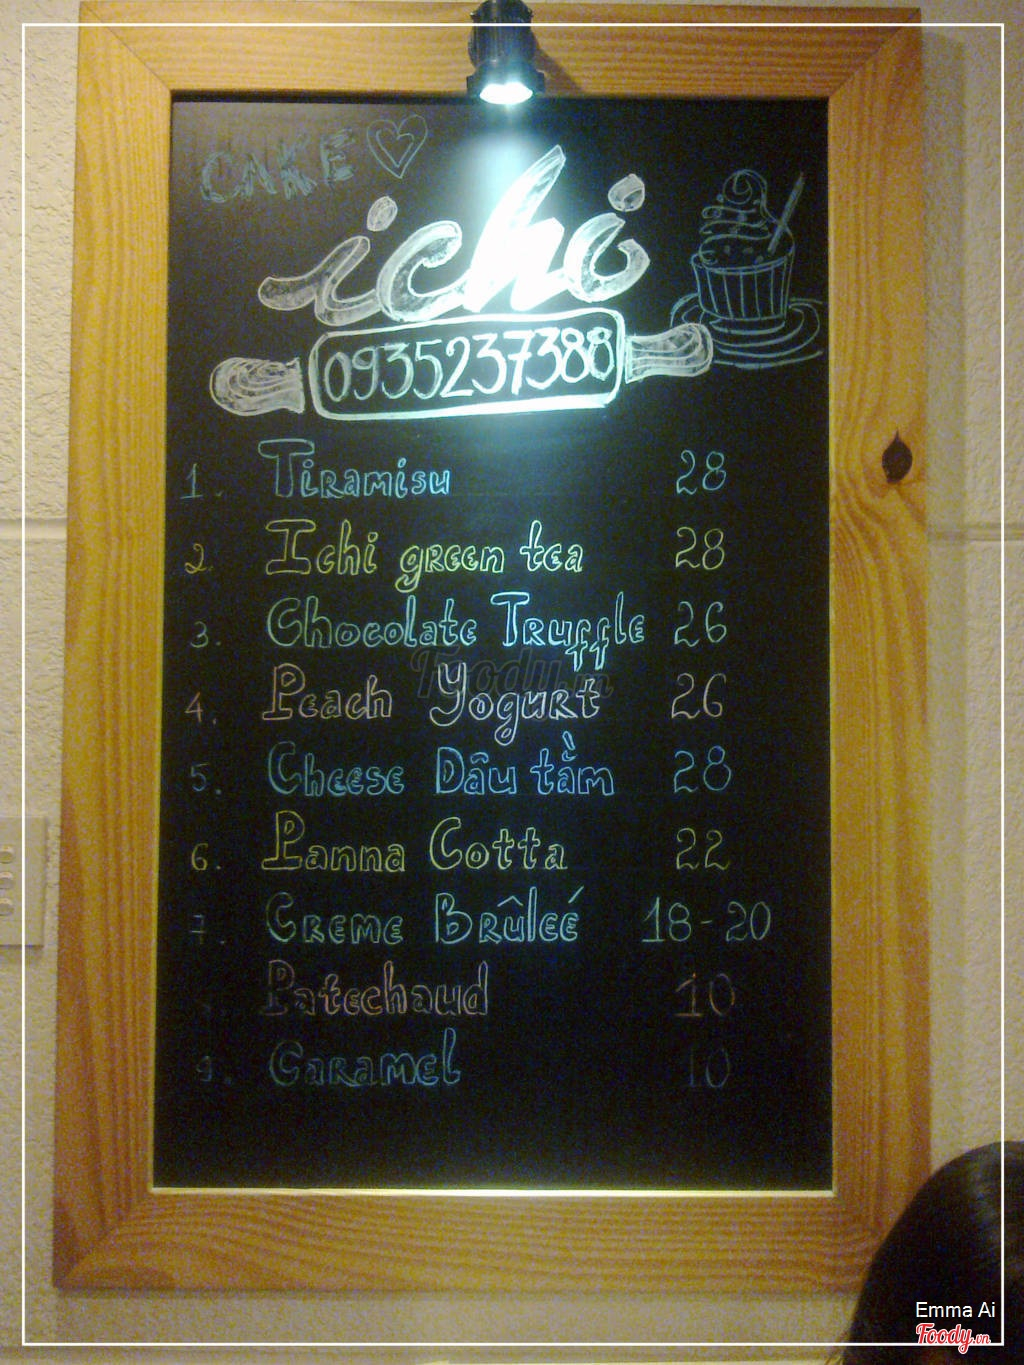 CAKE
ichi
0935237388
1. Tiramisu 28
2. Ichi green tea 28
3. Chocolate Truffle 26
4. Peach Yogurt 26
5. Cheese Dâu tằm 28
6. Panna Cotta 22
7. Creme Brûleé 18-20
Patechaud 10
9. Caramel 10
Foody.vn
Emma Ai
Foody.vn